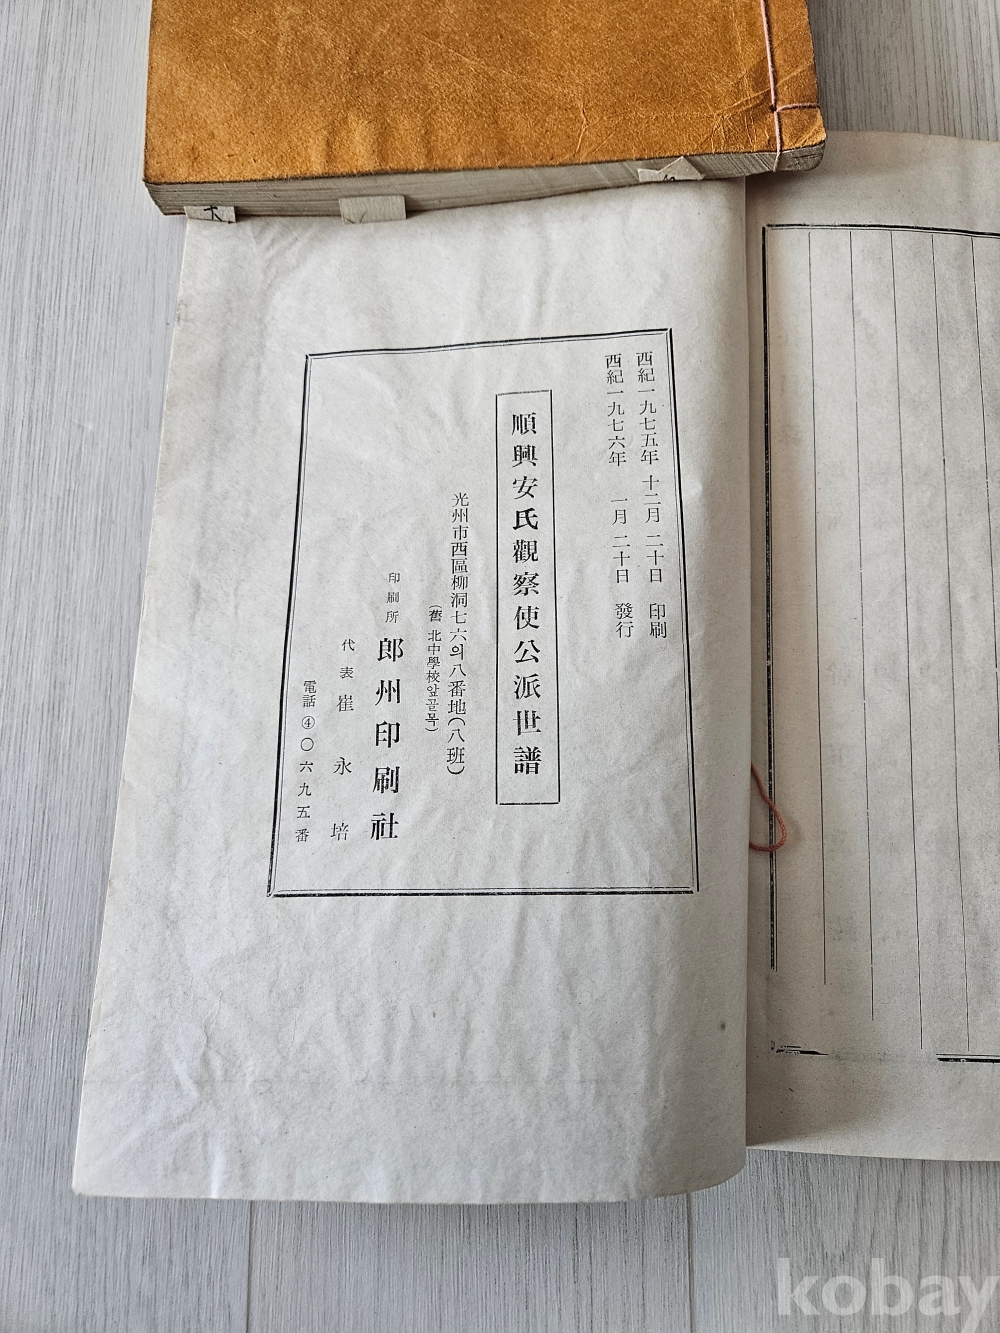 西紀一九七五年 十二月 二十日 印刷
西紀一九七六年 一月 二十日 發行
順興安氏觀察使公派世譜
光州市西區柳洞七六의八番地(八班)
(舊 北中學校앞골목)
印刷所 郎州印刷社
代表 崔永培
電話 ④〇六九五番
大
kobay